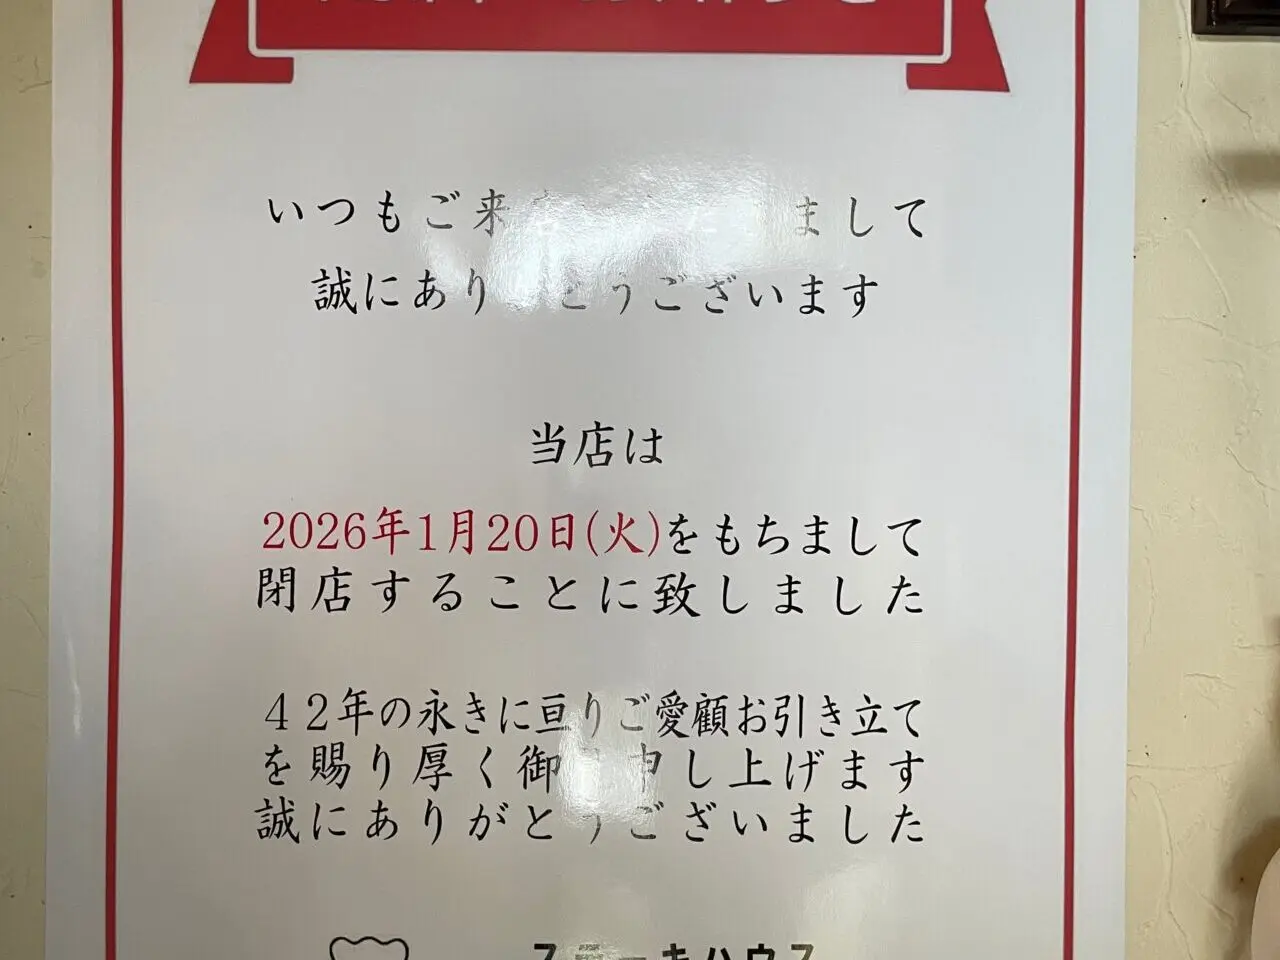 いつもご来 まして
誠にありがとうございます
当店は
2026年1月20日(火)をもちまして
閉店することに致しました
42年の永きに亘りご愛顧お引き立て
を賜り厚く御 申し上げます
誠にありがとうございました
ステーキハウス